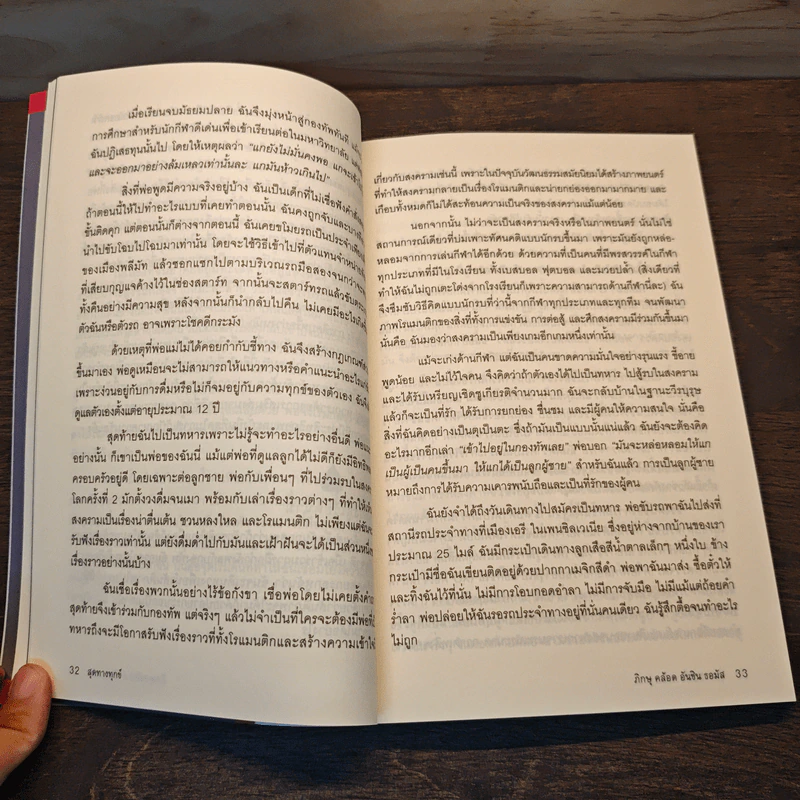 เมื่อเรียนจบมัธยมปลาย ฉันจึงมุ่งหน้าสู่กองทัพทันที
การศึกษาสำหรับนักกีฬาดีเด่นเพื่อเข้าเรียนต่อในมหาวิทยาลัย แต่
ฉันปฏิเสธทุนนั้นไป โดยให้เหตุผลว่า “แกยังไม่มั่นคงพอ แกจะเข้า
และจะออกมาอย่างล้มเหลวเท่านั้นละ แกมันห้าวเกินไป”
สิ่งที่พ่อพูดมีความจริงอยู่บ้าง ฉันเป็นเด็กที่ไม่เชื่อฟังคำสั่ง
ถ้าตอนนี้ให้ไปทำอะไรแบบที่เคยทำตอนนั้น ฉันคงถูกจับและบาง
ขั้นติดคุก แต่ตอนนั้นก็ต่างจากตอนนี้ ฉันเคยขโมยรถเป็นประจำเพื่อ
นำไปขับโฉบไปโฉบมาเท่านั้น โดยจะใช้วิธีเข้าไปที่ตัวแทนจำหน่าย
ของเมืองพลีมัท แล้วซอกแซกไปตามบริเวณรถมือสองจนกว่าจะ
ที่เสียบกุญแจค้างไว้ในช่องสตาร์ท จากนั้นจะสตาร์ทรถแล้วขับตระเวน
ทั้งคืนอย่างมีความสุข หลังจากนั้นก็นำกลับไปคืน ไม่เคยมีอะไรเกิดขึ้น
ตัวฉันหรือตัวรถ อาจเพราะโชคดีกระมัง
ด้วยเหตุที่พ่อแม่ไม่ได้คอยกำกับชี้ทาง ฉันจึงสร้างกฎเกณฑ์
ขึ้นมาเอง พ่อดูเหมือนจะไม่สามารถให้แนวทางหรือคำแนะนำอะไร
เพราะง่วนอยู่กับการดื่มหรือไม่ก็จมอยู่กับความทุกข์ของตัวเอง ฉันจึง
ดูแลตัวเองตั้งแต่อายุประมาณ 12 ปี
สุดท้ายฉันไปเป็นทหารเพราะไม่รู้จะทำอะไรอย่างอื่นดี พ่อ
อย่างนั้น ก็เขาเป็นพ่อของฉันนี่ แม้แต่พ่อที่ดูแลลูกได้ไม่ดีก็ยังมีอิทธิพล
ครอบครัวอยู่ดี โดยเฉพาะต่อลูกชาย พ่อกับเพื่อนๆ ที่ไปร่วมรบใน
โลกครั้งที่ 2 มักตั้งวงดื่มจนเมา พร้อมกับเล่าเรื่องราวต่างๆ ที่ทำให้
สงครามเป็นเรื่องน่าตื่นเต้น ชวนหลงใหล และโรแมนติก ไม่เพียงแต่ฉัน
รับฟังเรื่องราวเท่านั้น แต่ยังดื่มด่ำไปกับมันและเฝ้าฝันจะได้เป็นส่วนหนึ่ง
เรื่องราวอย่างนั้นบ้าง
ฉันเชื่อเรื่องพวกนั้นอย่างไร้ข้อกังขา เชื่อพ่อโดยไม่เคยตั้งคำถาม
สุดท้ายจึงเข้าร่วมกับกองทัพ แต่จริงๆ แล้วไม่จำเป็นที่ใครจะต้องมีพ่อ
ทหารถึงจะมีโอกาสรับฟังเรื่องราวที่ทั้งโรแมนติกและสร้างความเข้าใจ
32 สุดทางทุกข์
เกี่ยวกับสงครามเช่นนี้ เพราะในปัจจุบันวัฒนธรรมสมัยนิยมได้สร้างภาพยนตร์
ที่ทำให้สงครามกลายเป็นเรื่องโรแมนติกและน่ายกย่องออกมามากมาย และ
เกือบทั้งหมดก็ไม่ได้สะท้อนความเป็นจริงของสงครามแม้แต่น้อย
นอกจากนั้น ไม่ว่าจะเป็นสงครามจริงหรือในภาพยนตร์ นั่นไม่ใช่
สถานการณ์เดียวที่บ่มเพาะทัศนคติแบบนักรบขึ้นมา เพราะมันยังถูกหล่อ-
หลอมจากการเล่นกีฬาได้อีกด้วย ด้วยความเป็นคนที่มีพรสวรรค์ในกีฬา
ทุกประเภทที่มีในโรงเรียน ทั้งเบสบอล ฟุตบอล และมวยปล้ำ (สิ่งเดียวที่
ทำให้ฉันไม่ถูกเตะโด่งจากโรงเรียนก็เพราะความสามารถด้านกีฬานี่ละ) ฉัน
จึงซึมซับวิธีคิดแบบนักรบที่ว่านี้จากกีฬาทุกประเภทและทุกทีม จนพัฒนา
ภาพโรแมนติกของสิ่งที่ทั้งการแข่งขัน การต่อสู้ และศึกสงครามมีร่วมกันขึ้นมา
นั่นคือ ฉันมองว่าสงครามเป็นเพียงเกมอีกเกมหนึ่งเท่านั้น
แม้จะเก่งด้านกีฬา แต่ฉันเป็นคนขาดความมั่นใจอย่างรุนแรง ขี้อาย
พูดน้อย และไม่ไว้ใจคน จึงคิดว่าถ้าตัวเองได้ไปเป็นทหาร ไปสู้รบในสงคราม
และได้รับเหรียญเชิดชูเกียรติจำนวนมาก ฉันจะกลับบ้านในฐานะวีรบุรุษ
แล้วก็จะเป็นที่รัก ได้รับการยกย่อง ชื่นชม และมีผู้คนให้ความสนใจ นั่นคือ
สิ่งที่ฉันคิดอย่างเป็นตุเป็นตะ ซึ่งถ้ามันเป็นแบบนั้นแน่แล้ว ฉันยังจะต้องคิด
อะไรมากอีกเล่า “เข้าไปอยู่ในกองทัพเลย” พ่อบอก “มันจะหล่อหลอมให้แก
เป็นผู้เป็นคนขึ้นมา ให้แกได้เป็นลูกผู้ชาย” สำหรับฉันแล้ว การเป็นลูกผู้ชาย
หมายถึงการได้รับความเคารพนับถือและเป็นที่รักของผู้คน
ฉันยังจำได้ถึงวันเดินทางไปสมัครเป็นทหาร พ่อขับรถพาฉันไปส่งที่
สถานีรถประจำทางที่เมืองเอรี ในเพนซิลเวเนีย ซึ่งอยู่ห่างจากบ้านของเรา
ประมาณ 25 ไมล์ ฉันมีกระเป๋าเดินทางลูกเสือสีน้ำตาลเล็กๆ หนึ่งใบ ข้าง
กระเป๋ามีชื่อฉันเขียนติดอยู่ด้วยปากกาเมจิกสีดำ พ่อพาฉันมาส่ง ซื้อตั๋วให้
และทิ้งฉันไว้ที่นั่น ไม่มีการโอบกอดอำลา ไม่มีการจับมือ ไม่มีแม้แต่ถ้อยคำ
ร่ำลา พ่อปล่อยให้ฉันรอรถประจำทางอยู่ที่นั่นคนเดียว ฉันรู้สึกตื้อจนทำอะไร
ไม่ถูก
ภิกษุ คล้อด อันชิน ธอมัส 33